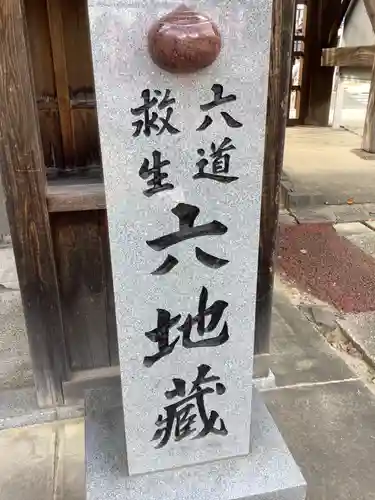 六道
救生
六地蔵